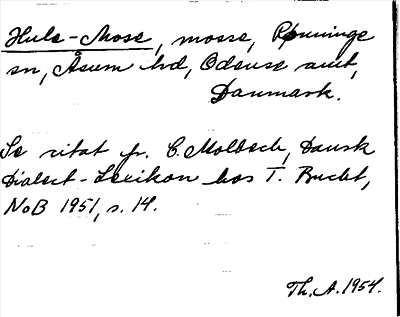 Huls-Mose, mosse, Rønninge
sn, Åsum hd, Odense amt,
Danmark.
Se citat fr. C. Molbech, Dansk
Dialect-Lexikon hos T. Bucht,
NoB 1951, s. 14.
Th. A. 1954.